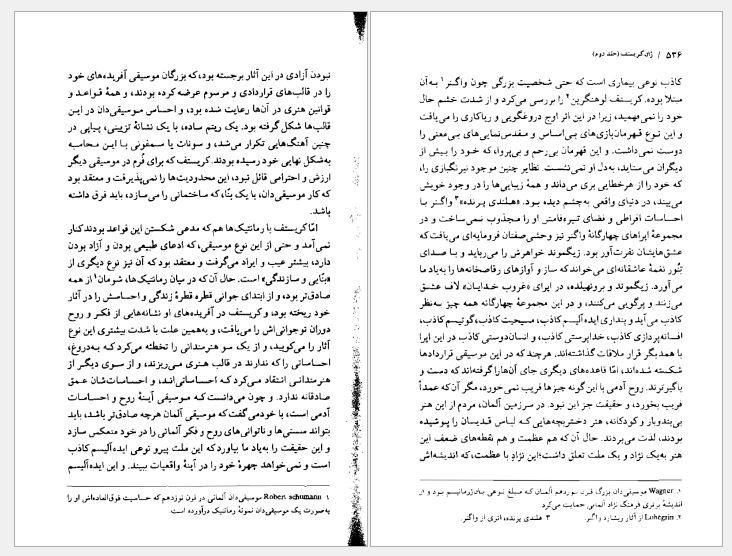 نبودن آزادی در این آثار برجسته بود، که بزرگان موسیقی آفریده‌های خود
را در قالب‌های قراردادی و مرسوم عرضه کرده بودند، و همهٔ قواعد و
قوانین هنری در آن‌ها رعایت شده بود، و احساس موسیقی‌دان در این
قالب‌ها شکل گرفته بود. یک ریتم ساده، با یک نشانهٔ تزیینی، پیاپی در
چنین آهنگ‌هایی تکرار می‌شد، و سونات یا سمفونی با این محاسبه
به‌شکل نهایی خود رسیده بودند. کریستف که برای فُرم در موسیقی دیگر
ارزش و احترامی قائل نبود، این محدودیت‌ها را نمی‌پذیرفت و معتقد بود
که کار موسیقی‌دان، با یک بنّا، که ساختمانی را می‌سازد، باید فرق داشته
باشد.
امّا کریستف با رمانتیک‌ها هم که مدعی شکستن این قواعد بودند کنار
نمی‌آمد و حتی از این نوع موسیقی، که ادعای طبیعی بودن و آزاد بودن
دارد، بیشتر عیب و ایراد می‌گرفت و معتقد بود که آن نیز نوع دیگری از
«بنّایی و سازندگی» است. حال آن که در میان رمانتیک‌ها، شومان۱ از همه
صادق‌تر بود، و از ابتدای جوانی قطره قطرهٔ زندگی و احساسش را در آثار
خود ریخته بود، و کریستف در آفریده‌های او نشانه‌هایی از فکر و روح
دوران نوجوانی‌اش را می‌یافت، و به‌همین علت با شدت بیشتری این نوع
آثار را می‌کوبید، و از یک سو هنرمندانی را تخطئه می‌کرد که به‌دروغ،
احساساتی را که ندارند در قالب هنری می‌ریزند، و از سوی دیگر از
هنرمندانی انتقاد می‌کرد که احساساتی‌اند، و احساسات‌شان عمق
صادقانه ندارد. و چون می‌دانست که موسیقی آینهٔ روح و احساسات
آدمی است، با خود می‌گفت که موسیقی آلمان هرچه صادق‌تر باشد، باید
بتواند سستی‌ها و ناتوانی‌های روح و فکر آلمانی را در خود منعکس سازد
و این حقیقت را به‌یاد ما بیاورد که این ملت پیرو نوعی ایده‌آلیسم کاذب
است و نمی‌خواهد چهرهٔ خود را در آینهٔ واقعیات ببیند. و این ایده‌آلیسم
۱. Robert schumann موسیقی‌دان آلمانی در قرن نوزدهم که حساسیت فوق‌العاده‌اش او را
به‌صورت یک موسیقی‌دان نمونهٔ رمانتیک درآورده است.
۵۳۶ / ژان کریستف (جلد دوم)
کاذب نوعی بیماری است که حتی شخصیت بزرگی چون واگنر۱ به‌آن
مبتلا بوده. کریستف لوهنگرین۲ را بررسی می‌کرد و از شدت خشم حال
خود را نمی‌فهمید، زیرا در این اثر اوج دروغگویی و ریاکاری را می‌یافت
و این نوع قهرمان‌بازی‌های بی‌اساس و مقدس‌نمایی‌های بی‌معنی را
دوست نمی‌داشت. و این قهرمان بی‌رحم و بی‌پروا، که خود را بیش از
دیگران می‌ستاید، به‌دل او نمی‌نشست. نظایر چنین موجود نیرنگبازی را،
که خود را از هرخطایی بری می‌داند و همهٔ زیبایی‌ها را در وجود خویش
می‌بیند، در دنیای واقعی به‌چشم دیده بود. «هلندی پرنده»۳ واگنر با
احساسات افراطی و فضای تیره‌فامش او را مجذوب نمی‌ساخت و در
مجموعهٔ اپراهای چهارگانهٔ واگنر نیز وحشی‌صفتان فرومایه‌ای می‌یافت که
عشق‌هایشان نفرت‌آور بود. زیگموند خواهرش را می‌رباید و با صدای
تِنُور نغمهٔ عاشقانه‌ای می‌خواند که ساز و آوازهای رقاصخانه‌ها را به‌یاد ما
می‌آورد. زیگموند و برونهیلده، در اپرای «غروب خدایان» لاف عشق
می‌زنند و پرگویی می‌کنند، و در این مجموعهٔ چهارگانه همه چیز به‌نظر
کاذب می‌آید و پنداری ایده‌آلیسم کاذب، مسیحیت کاذب، گوتیسم کاذب،
افسانه‌پردازی کاذب، خداپرستی کاذب، و انسان‌دوستی کاذب در این اپرا
با همدیگر قرار ملاقات گذاشته‌اند. هرچند که در این موسیقی قراردادها
شکسته شده‌اند، امّا قاعده‌های دیگری جای آن‌ها را گرفته‌اند که دست و
پاگیرترند. روح آدمی با این‌گونه چیزها فریب نمی‌خورد، مگر آن که عمداً
فریب بخورد، و حقیقت جز این نبود. در سرزمین آلمان، مردم از این هنر
بی‌بندوبار و کودکانه، هنر دختربچه‌هایی که لباس قدیسان را پوشیده
بودند، لذت می‌بردند. حال آن که هم عظمت و هم نقطه‌های ضعف این
هنر به‌یک نژاد و یک ملت تعلق داشت؛ این نژادِ با عظمت، که اندیشه‌اش
۱. Wagner موسیقی‌دان بزرگ قرن نوزدهم آلمان که مبلغ نوعی پان‌ژرمانیسم بود و از
اندیشهٔ برتری فرهنگ نژاد آلمانی حمایت می‌کرد
۲. Lohegrin از آثار ریشارد واگنر. ۳ هلندی پرنده، اثری از واگنر.